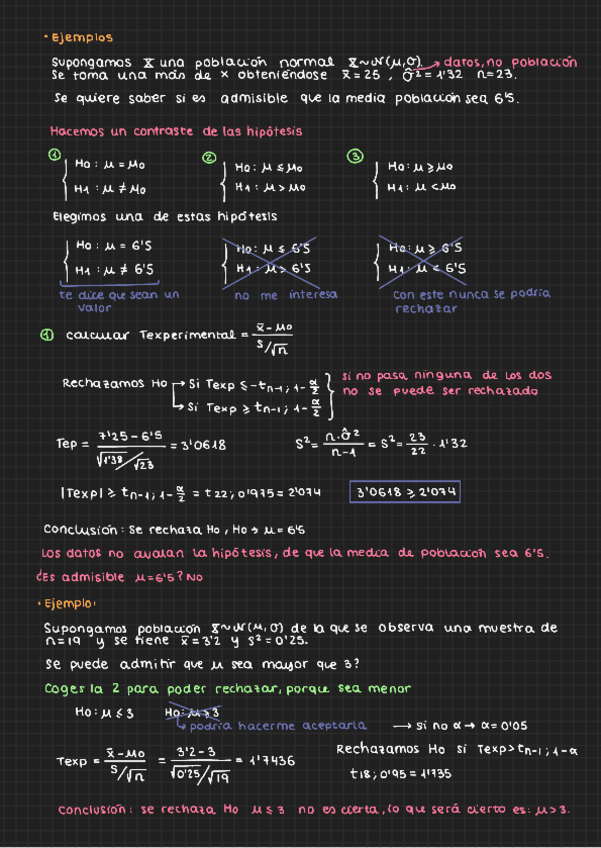 · Ejemplos
Supongamos X una población normal X~N(μ,σ). → datas, no población
Se toma una más de x obteniéndose x̄ = 25 , σ̂² = 1'32 n=23.
Se quiere saber si es admisible que la media población sea 6'5.
Hacemos un contraste de las hipótesis
① { H0 : μ = μ0 ② { H0 : μ ≤ μ0 ③ { H0 : μ ≥ μ0
H1 : μ ≠ μ0 H1 : μ > μ0 H1 : μ < μ0
Elegimos una de estas hipótesis
{ H0 : μ = 6'5 { H0 : μ ≤ 6'5 { H0 : μ ≥ 6'5
H1 : μ ≠ 6'5 H1 : μ > 6'5 H1 : μ < 6'5
te dice que sean un no me interesa con este nunca se podría
valor rechazar
① calcular Texperimental = x̄ - μ0 / S/√n
Rechazamos H0 → Si Texp ≤ -t n-1; 1-α/2 si no pasa ninguna de los dos
→ Si Texp ≥ t n-1; 1-α/2 no se puede ser rechazado
Tep = 7'25 - 6'5 / √1'38/√23 = 3'0618 S² = n·σ̂² / n-1 = S² = 23/22 · 1'32
|Texp| ≥ t n-1; 1-α/2 = t 22; 0'975 = 2'074 3'0618 ≥ 2'074
Conclusión: Se rechaza H0, H0 → μ = 6'5
Los datos no avalan la hipótesis, de que la media de población sea 6'5.
¿Es admisible μ=6'5? No
· Ejemplo:
Supongamos población X~N(μ,σ) de la que se observa una muestra de
n=19 y se tiene x̄ = 3'2 y S² = 0'25.
Se puede admitir que μ sea mayor que 3?
Coges la 2 para poder rechazar, porque sea menor
H0 : μ ≤ 3 H0 : μ ≥ 3
→ podría hacerme aceptarla → si no α → α = 0'05
Texp = x̄ - μ0 / S/√n = 3'2 - 3 / √0'25/√19 = 1'7436 Rechazamos H0 si Texp > t n-1; 1-α
t18; 0'95 = 1'735
Conclusión: se rechaza H0 μ ≤ 3 no es cierta, lo que será cierto es: μ > 3.